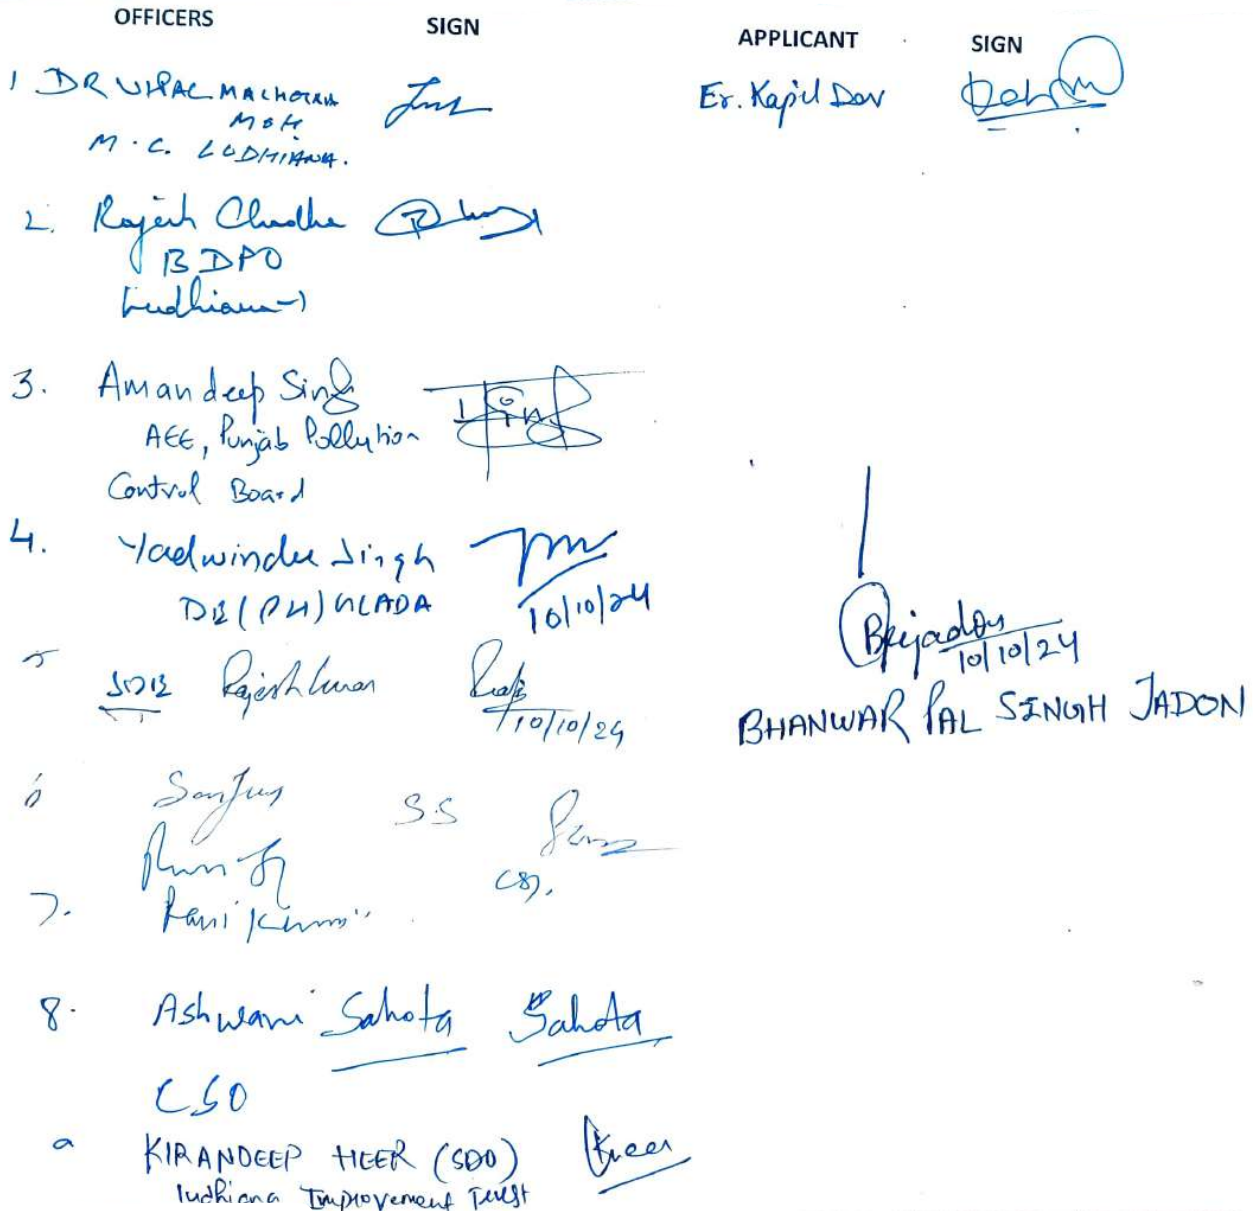 OFFICERS SIGN APPLICANT SIGN
1 DR VIPAL MALHOTRA Er. Kapil Dev
MOH
M.C. LUDHIANA.
2. Rajesh Chadha
BDPO
Ludhiana-1
3. Amandeep Singh
AEE, Punjab Pollution
Control Board
4. Yadwinder Singh
DE(PH) GLADA 10/10/24
Bpsjadon
10/10/24
5 SDE Rajesh Kumar
10/10/24
BHANWAR PAL SINGH JADON
6 S.S
CSI.
7. Ravi Kumar
8. Ashwani Sahota Sahota
CSO
9 KIRANDEEP HEER (SDO) Kheer
ludhiana Improvement Trust